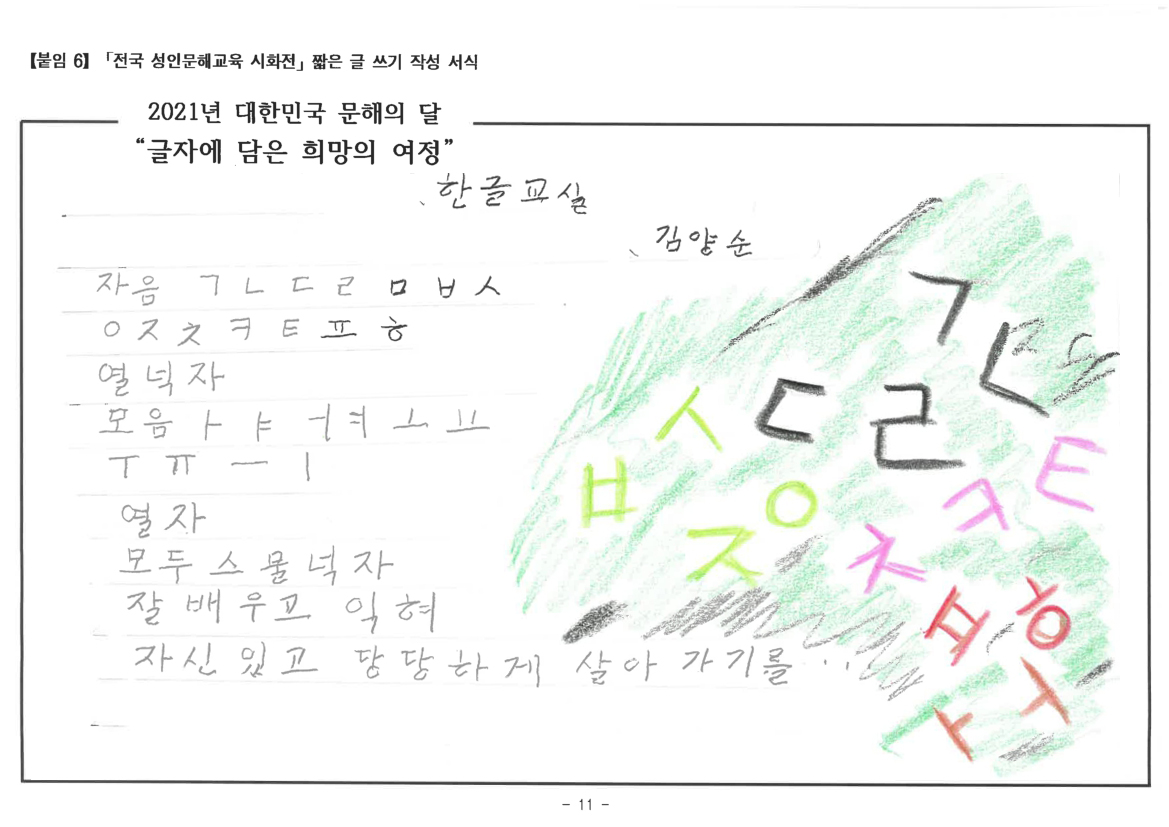 【붙임 6】 「전국 성인문해교육 시화전」 짧은 글 쓰기 작성 서식
2021년 대한민국 문해의 달
“글자에 담은 희망의 여정”
한글교실
김양순
자음 ㄱ ㄴ ㄷ ㄹ ㅁ ㅂ ㅅ
ㅇ ㅈ ㅊ ㅋ ㅌ ㅍ ㅎ
열넉자
모음 ㅏ ㅑ ㅓ ㅕ ㅗ ㅛ
ㅜ ㅠ ㅡ ㅣ
열자
모두 스물넉자
잘 배우고 익혀
자신 있고 당당하게 살아 가기를 ...
ㄱ
ㄴ
ㅅ ㄷ ㄹ
ㅂ ㅇ ㅋ ㅌ
ㅈ ㅊ
ㅎ
ㅗ ㅓ
- 11 -